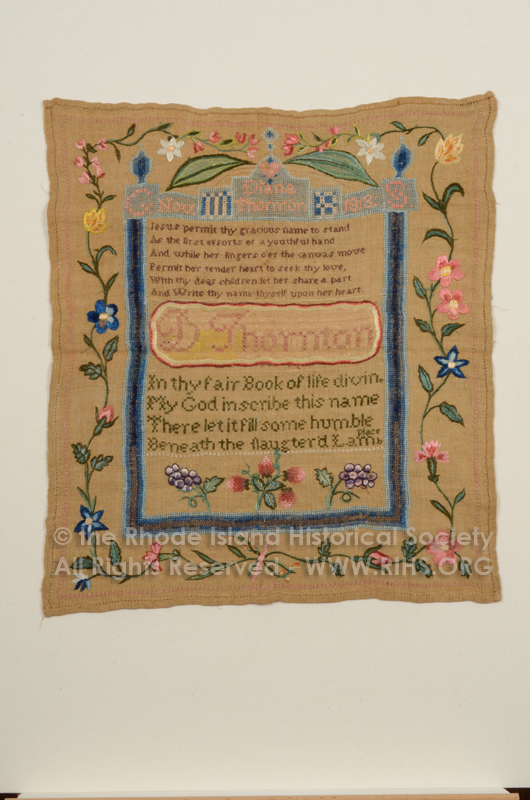 Diana
Nov Thornton 1818
Jesus permit thy gracious name to stand
As the first efforts of a youthful hand
And while her fingers o'er the canvas move
Permit her tender heart to seek thy love,
With thy dear children let her share a part
And Write thy name thyself upon her heart
D Thorntan
In thy fair Book of life divin,
My God inscribe this name
There let it fill some humble
place
Beneath the slaugterd Lamb
© The Rhode Island Historical Society
All Rights Reserved - WWW.RIHS.ORG